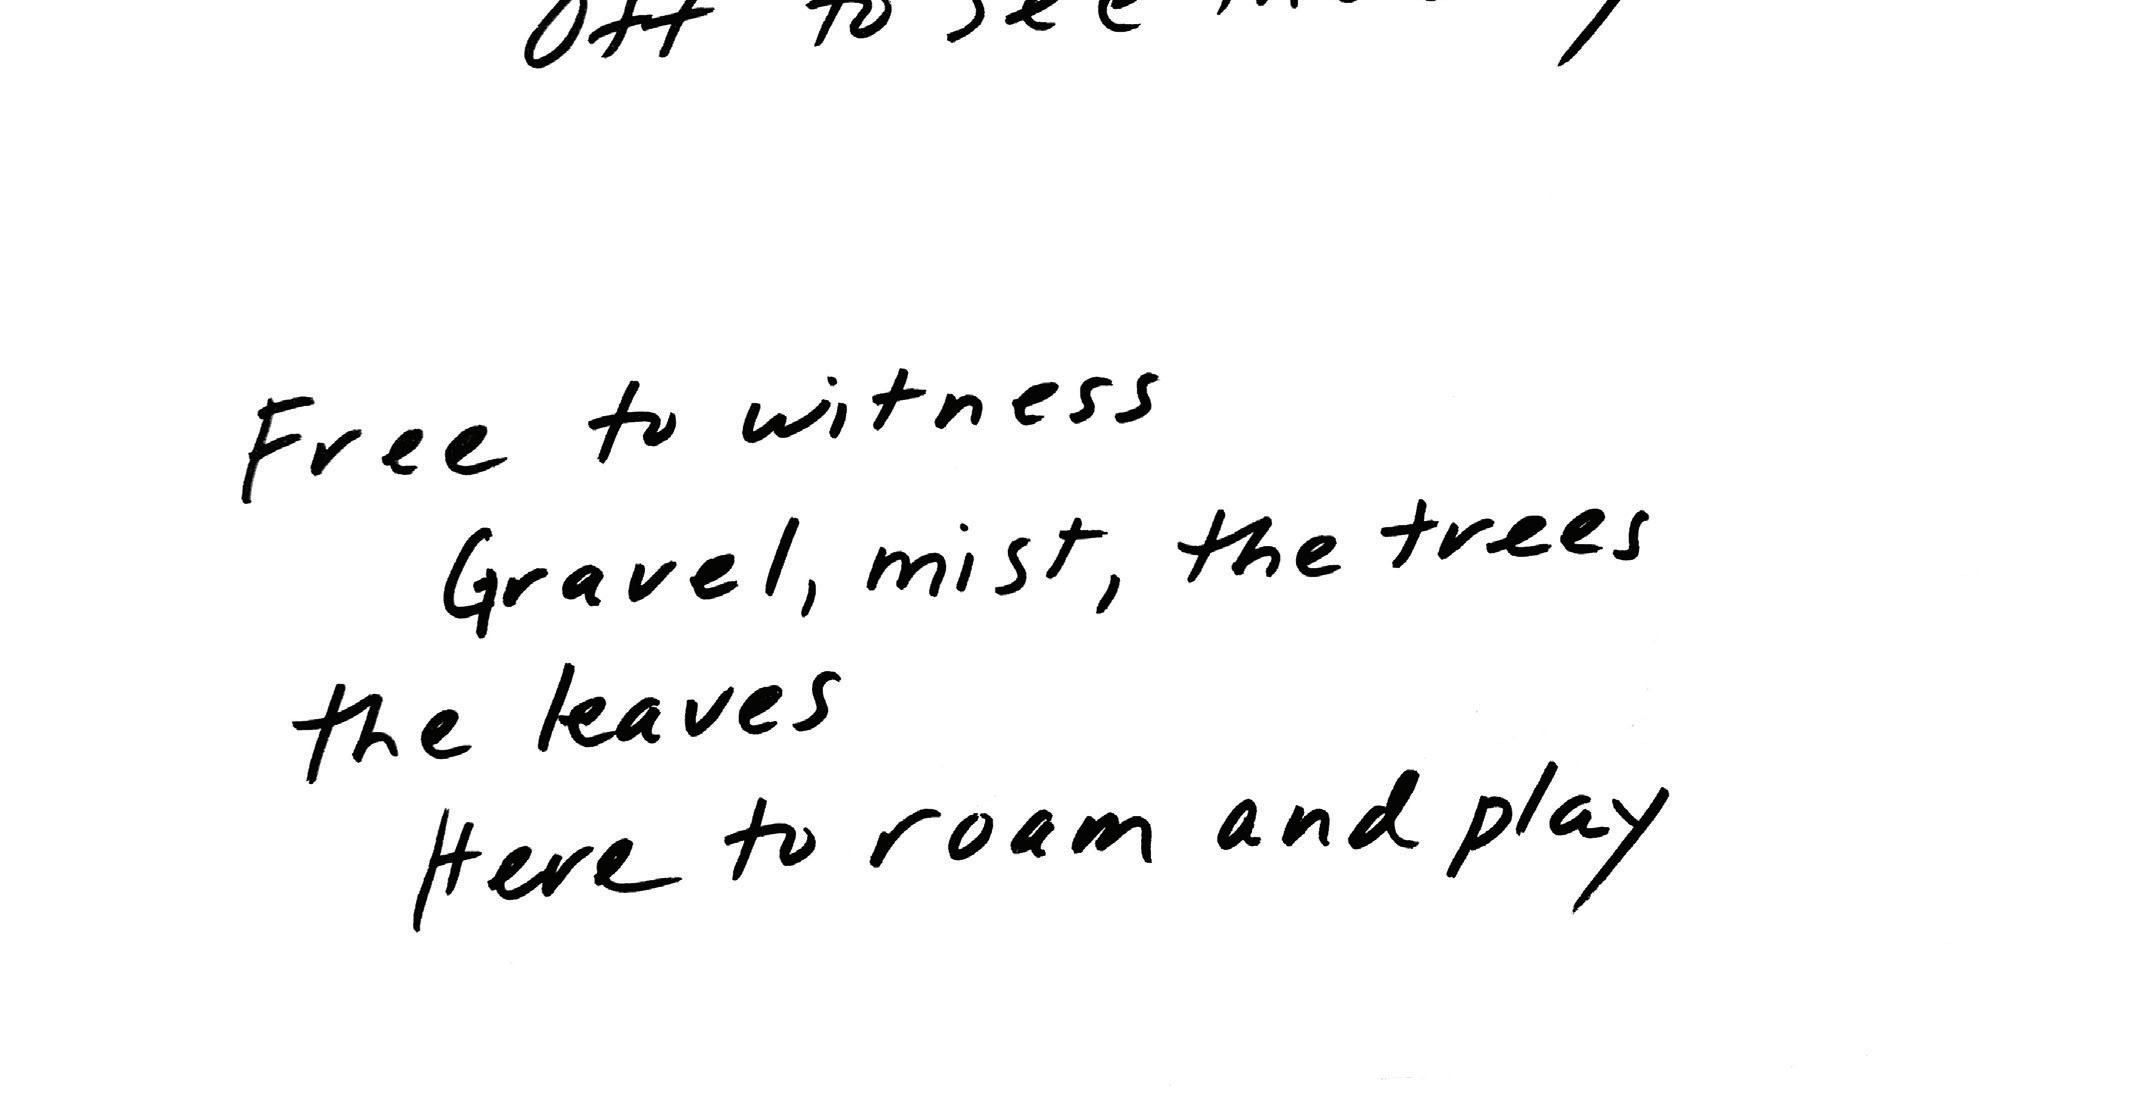 Off to see
Free to witness
Gravel, mist, the trees
the leaves
Here to roam and play